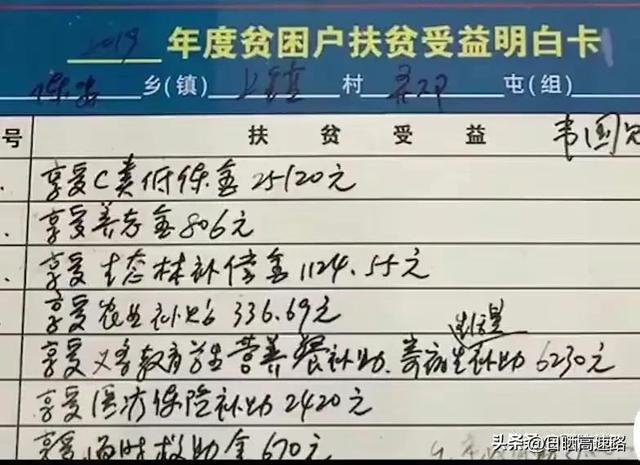 2019 年度贫困户扶贫受益明白卡
保安 乡(镇) 上镇 村 屯(组)
号 扶贫受益 韦国
享受C类低保金25120元
享受养老金806元
享受生态林补偿金1124.55元
享受农业补贴336.69元
享受义务教育学生营养餐补助.寄宿生补助6230元
享受医疗保险补助2420元
享受临时救助金670元
头条 @日晒高速路